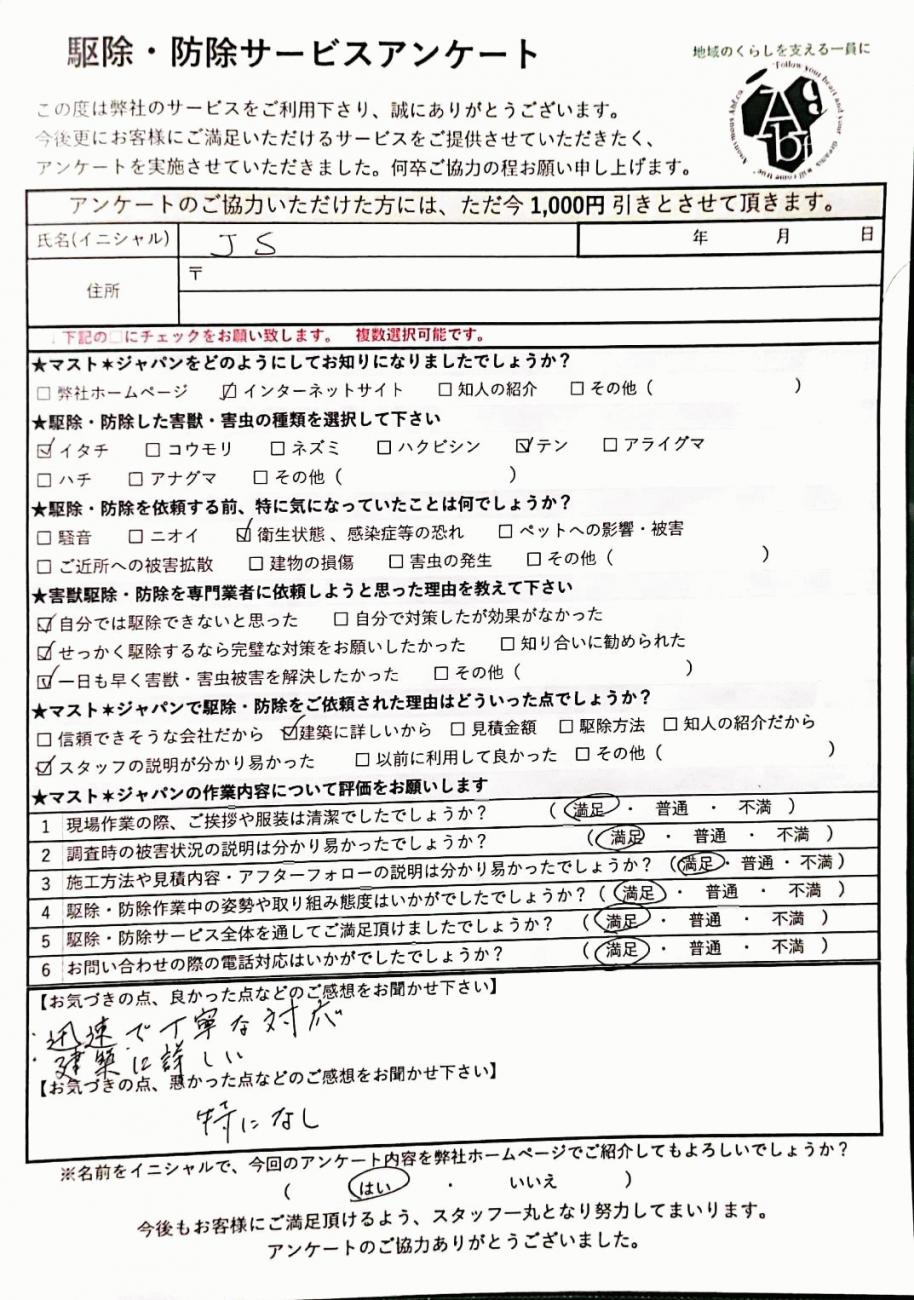 駆除・防除サービスアンケート
地域のくらしを支える一員に
この度は弊社のサービスをご利用下さり、誠にありがとうございます。
今後更にお客様にご満足いただけるサービスをご提供させていただきたく、
アンケートを実施させていただきました。何卒ご協力の程お願い申し上げます。
アンケートのご協力いただけた方には、ただ今 1,000円 引きとさせて頂きます。
氏名(イニシャル) JS 年 月 日
住所 〒
↓下記の□にチェックをお願い致します。 複数選択可能です。
★マスト✶ジャパンをどのようにしてお知りになりましたでしょうか？
□ 弊社ホームページ ☑ インターネットサイト □ 知人の紹介 □ その他（ ）
★駆除・防除した害獣・害虫の種類を選択して下さい
☑ イタチ □ コウモリ □ ネズミ □ ハクビシン ☑ テン □ アライグマ
□ ハチ □ アナグマ □ その他（ ）
★駆除・防除を依頼する前、特に気になっていたことは何でしょうか？
□ 騒音 □ ニオイ ☑ 衛生状態、感染症等の恐れ □ ペットへの影響・被害
□ ご近所への被害拡散 □ 建物の損傷 □ 害虫の発生 □ その他（ ）
★害獣駆除・防除を専門業者に依頼しようと思った理由を教えて下さい
☑ 自分では駆除できないと思った □ 自分で対策したが効果がなかった
☑ せっかく駆除するなら完璧な対策をお願いしたかった □ 知り合いに勧められた
☑ 一日も早く害獣・害虫被害を解決したかった □ その他（ ）
★マスト✶ジャパンで駆除・防除をご依頼された理由はどういった点でしょうか？
□ 信頼できそうな会社だから ☑ 建築に詳しいから □ 見積金額 □ 駆除方法 □ 知人の紹介だから
☑ スタッフの説明が分かり易かった □ 以前に利用して良かった □ その他（ ）
★マスト✶ジャパンの作業内容について評価をお願いします
1 現場作業の際、ご挨拶や服装は清潔でしたでしょうか？ （ 満足 ・ 普通 ・ 不満 ）
2 調査時の被害状況の説明は分かり易かったでしょうか？ （ 満足 ・ 普通 ・ 不満 ）
3 施工方法や見積内容・アフターフォローの説明は分かり易かったでしょうか？ （ 満足 ・ 普通 ・ 不満 ）
4 駆除・防除作業中の姿勢や取り組み態度はいかがでしたでしょうか？ （ 満足 ・ 普通 ・ 不満 ）
5 駆除・防除サービス全体を通してご満足頂けましたでしょうか？ （ 満足 ・ 普通 ・ 不満 ）
6 お問い合わせの際の電話対応はいかがでしたでしょうか？ （ 満足 ・ 普通 ・ 不満 ）
【お気づきの点、良かった点などのご感想をお聞かせ下さい】
・迅速で丁寧な対応
・建築に詳しい
【お気づきの点、悪かった点などのご感想をお聞かせ下さい】
特になし
※名前をイニシャルで、今回のアンケート内容を弊社ホームページでご紹介してもよろしいでしょうか？
（ はい ・ いいえ ）
今後もお客様にご満足頂けるよう、スタッフ一丸となり努力してまいります。
アンケートのご協力ありがとうございました。